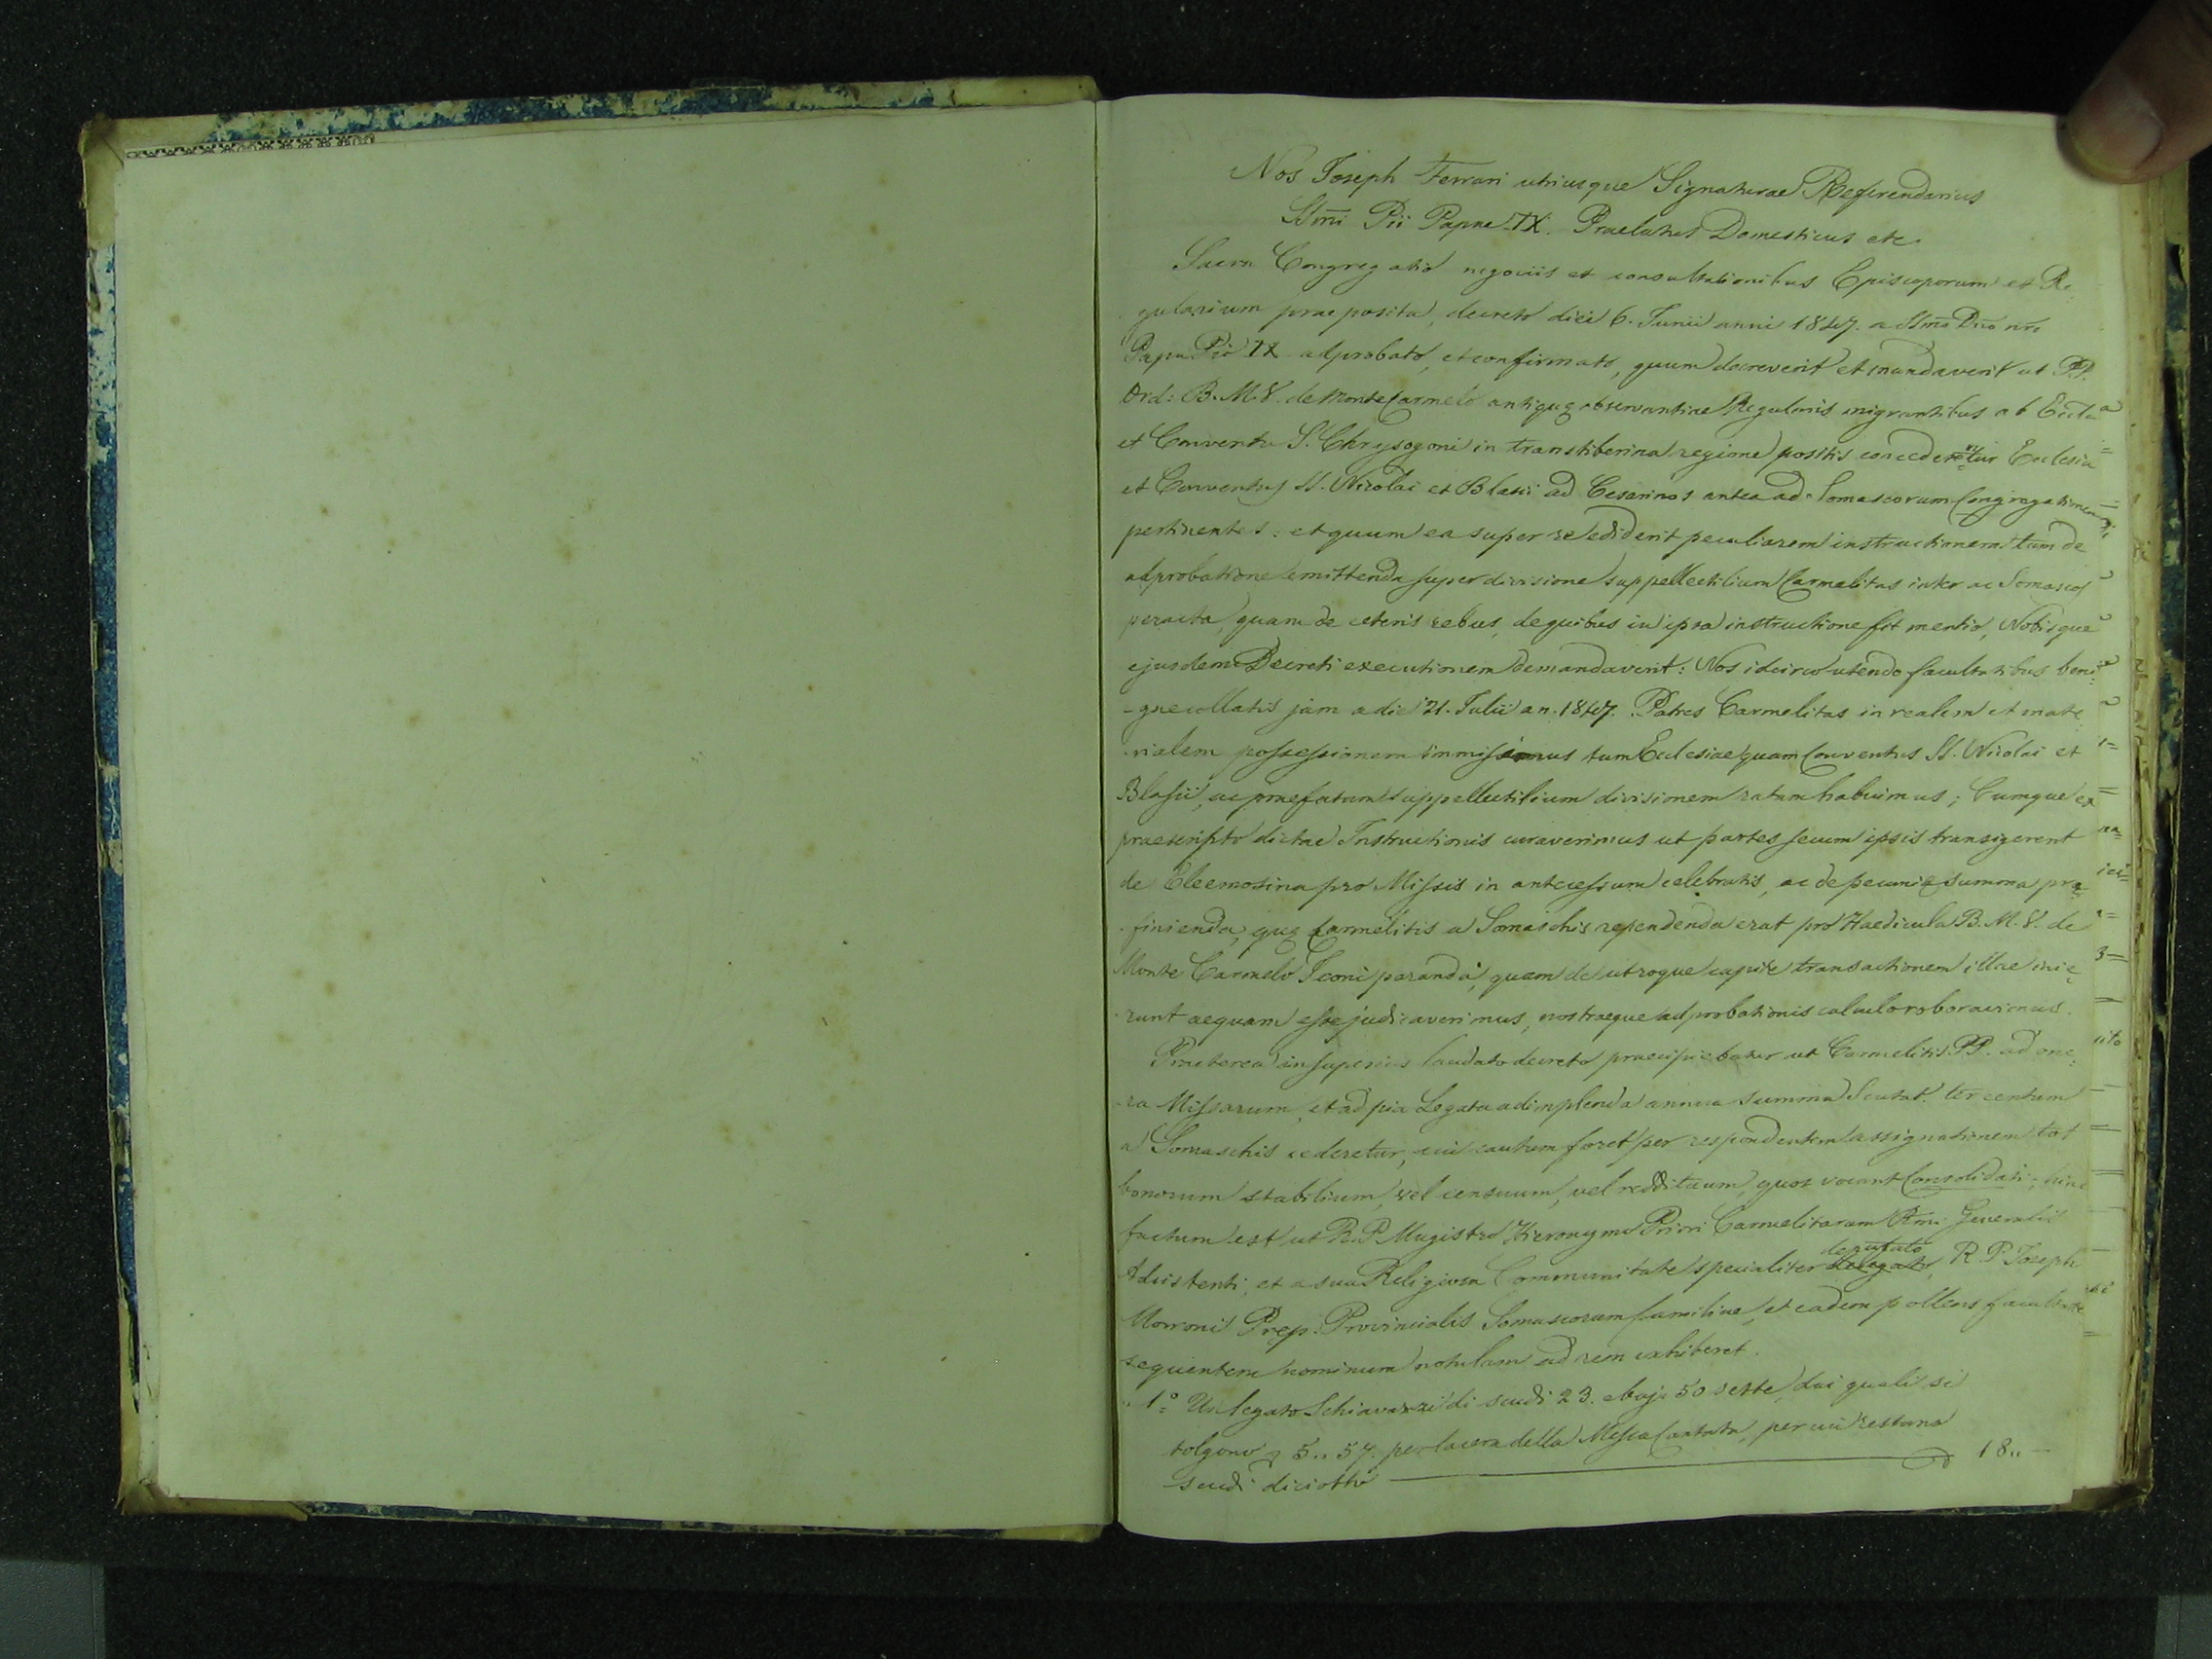 Nos Joseph Ferrari utriusque Signaturae Referendarius
SSmi Pii Papae IX. Praelatus Domesticus etc
Sacra Congregatio negociis et consultationibus Episcoporum et Re
gularium praeposita, decreto diei 6. Junii anni 1847. a SSmo Dno nro
Papa Pio IX adprobato, et confirmato, quum decreverit et mandaverit ut PP.
Ord: B. M. V. de Monte Carmelo antiquę observantiae Regularis migrantibus ab Eccla
et Conventu S. Chrysogoni in transtiberina regione positis concederetur Ecclesia
et Conventus SS. Nicolai et Blasii ad Cesarinos antea ad Somascorum Congregationem
pertinentes: et quum ea super re ediderit peculiarem instructionem tum de
adprobatione emittenda super divisione suppellectilium Carmelitas inter ac Somascos
peracta, quam de ceteris rebus, de quibus in ipsa instructione fit mentio, Nobisque
ejusdem Decreti executionem demandaverit: Nos idcirco utendo facultatibus beni=
-gne collatis jam a die 21. Julii an. 1847. Patres Carmelitas in realem et mate
rialem possessionem immisimus tum Ecclesiae quam Conventus SS. Nicolai et
Blasii, ac praefatam suppellectilium divisionem ratam habuimus; Cumque ex
praescripto dictae Instructionis curaverimus ut partes secum ipsis transigerent
de Eleemosina pro Missis in antecessum celebratis, ac de pecunię summa prę=
finienda, quę Carmelitis a Somaschis rependenda erat pro Haedicula B. M. V. de
Monte Carmelo Iconi paranda, quam de utroque capite transactionem illae inie
runt aequam esse judicaverimus, nostraeque adprobationis calculo roboravimus.
Praeterea in superius laudato decreto praecipiebatur ut Carmelitis PP. ad one
ra Missarum, et ad pia Legata adimplenda annua summa Scutat. ter centum
a Somaschis cederetur, cui cautum foret per respondentem assignationem tot
bonorum stabilium, vel censuum, vel reddituum, quos vocant Consolidati; hinc
factum est ut R. P. Magistro Hieronymo Priori Carmelitarum Rmi Generalis
Adsistenti, et a sua Religiosa Communitate specialiter delegato deputato, R. P. Joseph
Morroni Prep. Provincialis Somascorum familiae, et eadem pollens facultate
sequentem nominum notulam ad rem exhiberet.
1.° Un legato Schiavazzi di scudi 23. e baj. 50 sette, dai quali si
tolgono 5.. 57. per la cera della Messa Cantata, per cui restano
scudi diciotto 18.. —